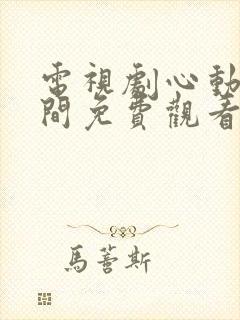 電視劇心動
間免費觀看
馬蓍斯